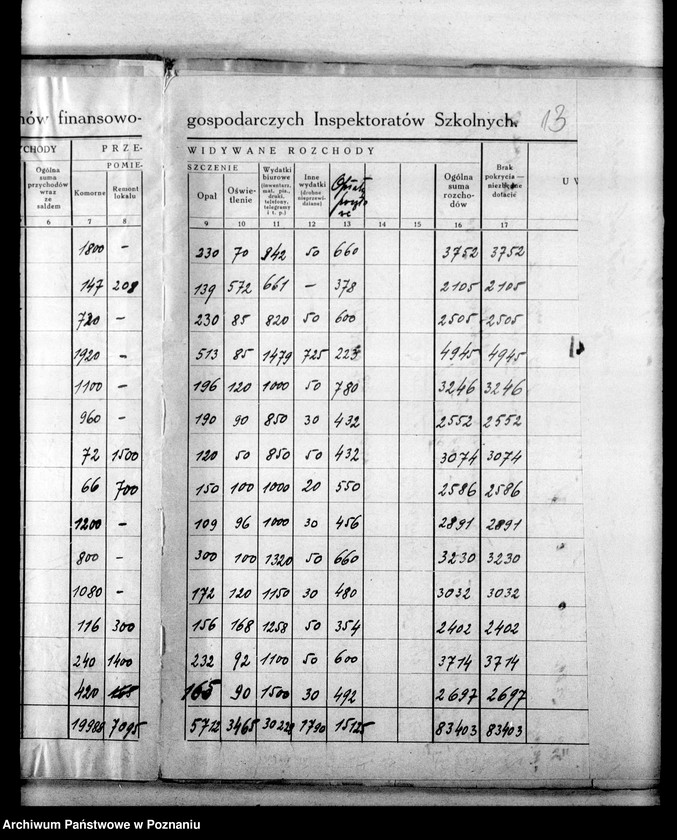 nów finansowo- gospodarczych Inspektoratów Szkolnych. 13
CHODY PRZE- WIDYWANE ROZCHODY
POMIE- SZCZENIE
Ogólna suma przychodów wraz ze saldem Komorne Remont lokalu Opał Oświe-tlenie Wydatki biurowe (inwentarz, mat. pis., druki, telefony, telegramy i t. p.) Inne wydatki (drobne nieprzewi-dziane) Opłaty Ogólna suma rozcho-dów Brak pokrycia — niezbędne dotacje U
6 7 8 9 10 11 12 13 14 15 16 17
1800 — 230 70 842 50 660 3752 3752
147 208 139 572 661 — 378 2105 2105
720 — 230 85 820 50 600 2505 2505
1920 — 513 85 1479 725 223 4945 4945
1100 — 196 120 1000 50 780 3246 3246
960 — 190 90 850 30 432 2552 2552
72 1500 120 50 850 50 432 3074 3074
66 700 150 100 1000 20 550 2586 2586
1200 — 109 96 1000 30 456 2891 2891
800 — 300 100 1320 50 660 3230 3230
1080 — 172 120 1150 30 480 3032 3032
116 300 156 168 1258 50 354 2402 2402
240 1400 232 92 1100 50 600 3714 3714
420 165 90 1500 30 492 2697 2697
19986 7095 5712 3465 30228 1790 15125 83403 83403
Archiwum Państwowe w Poznaniu